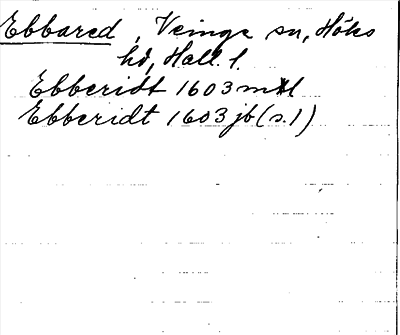 Ebbared, Veinge sn, Höks
hd, Hall. l.
Ebberidt 1603 mtl
Ebberidt 1603 jb (s. 1)